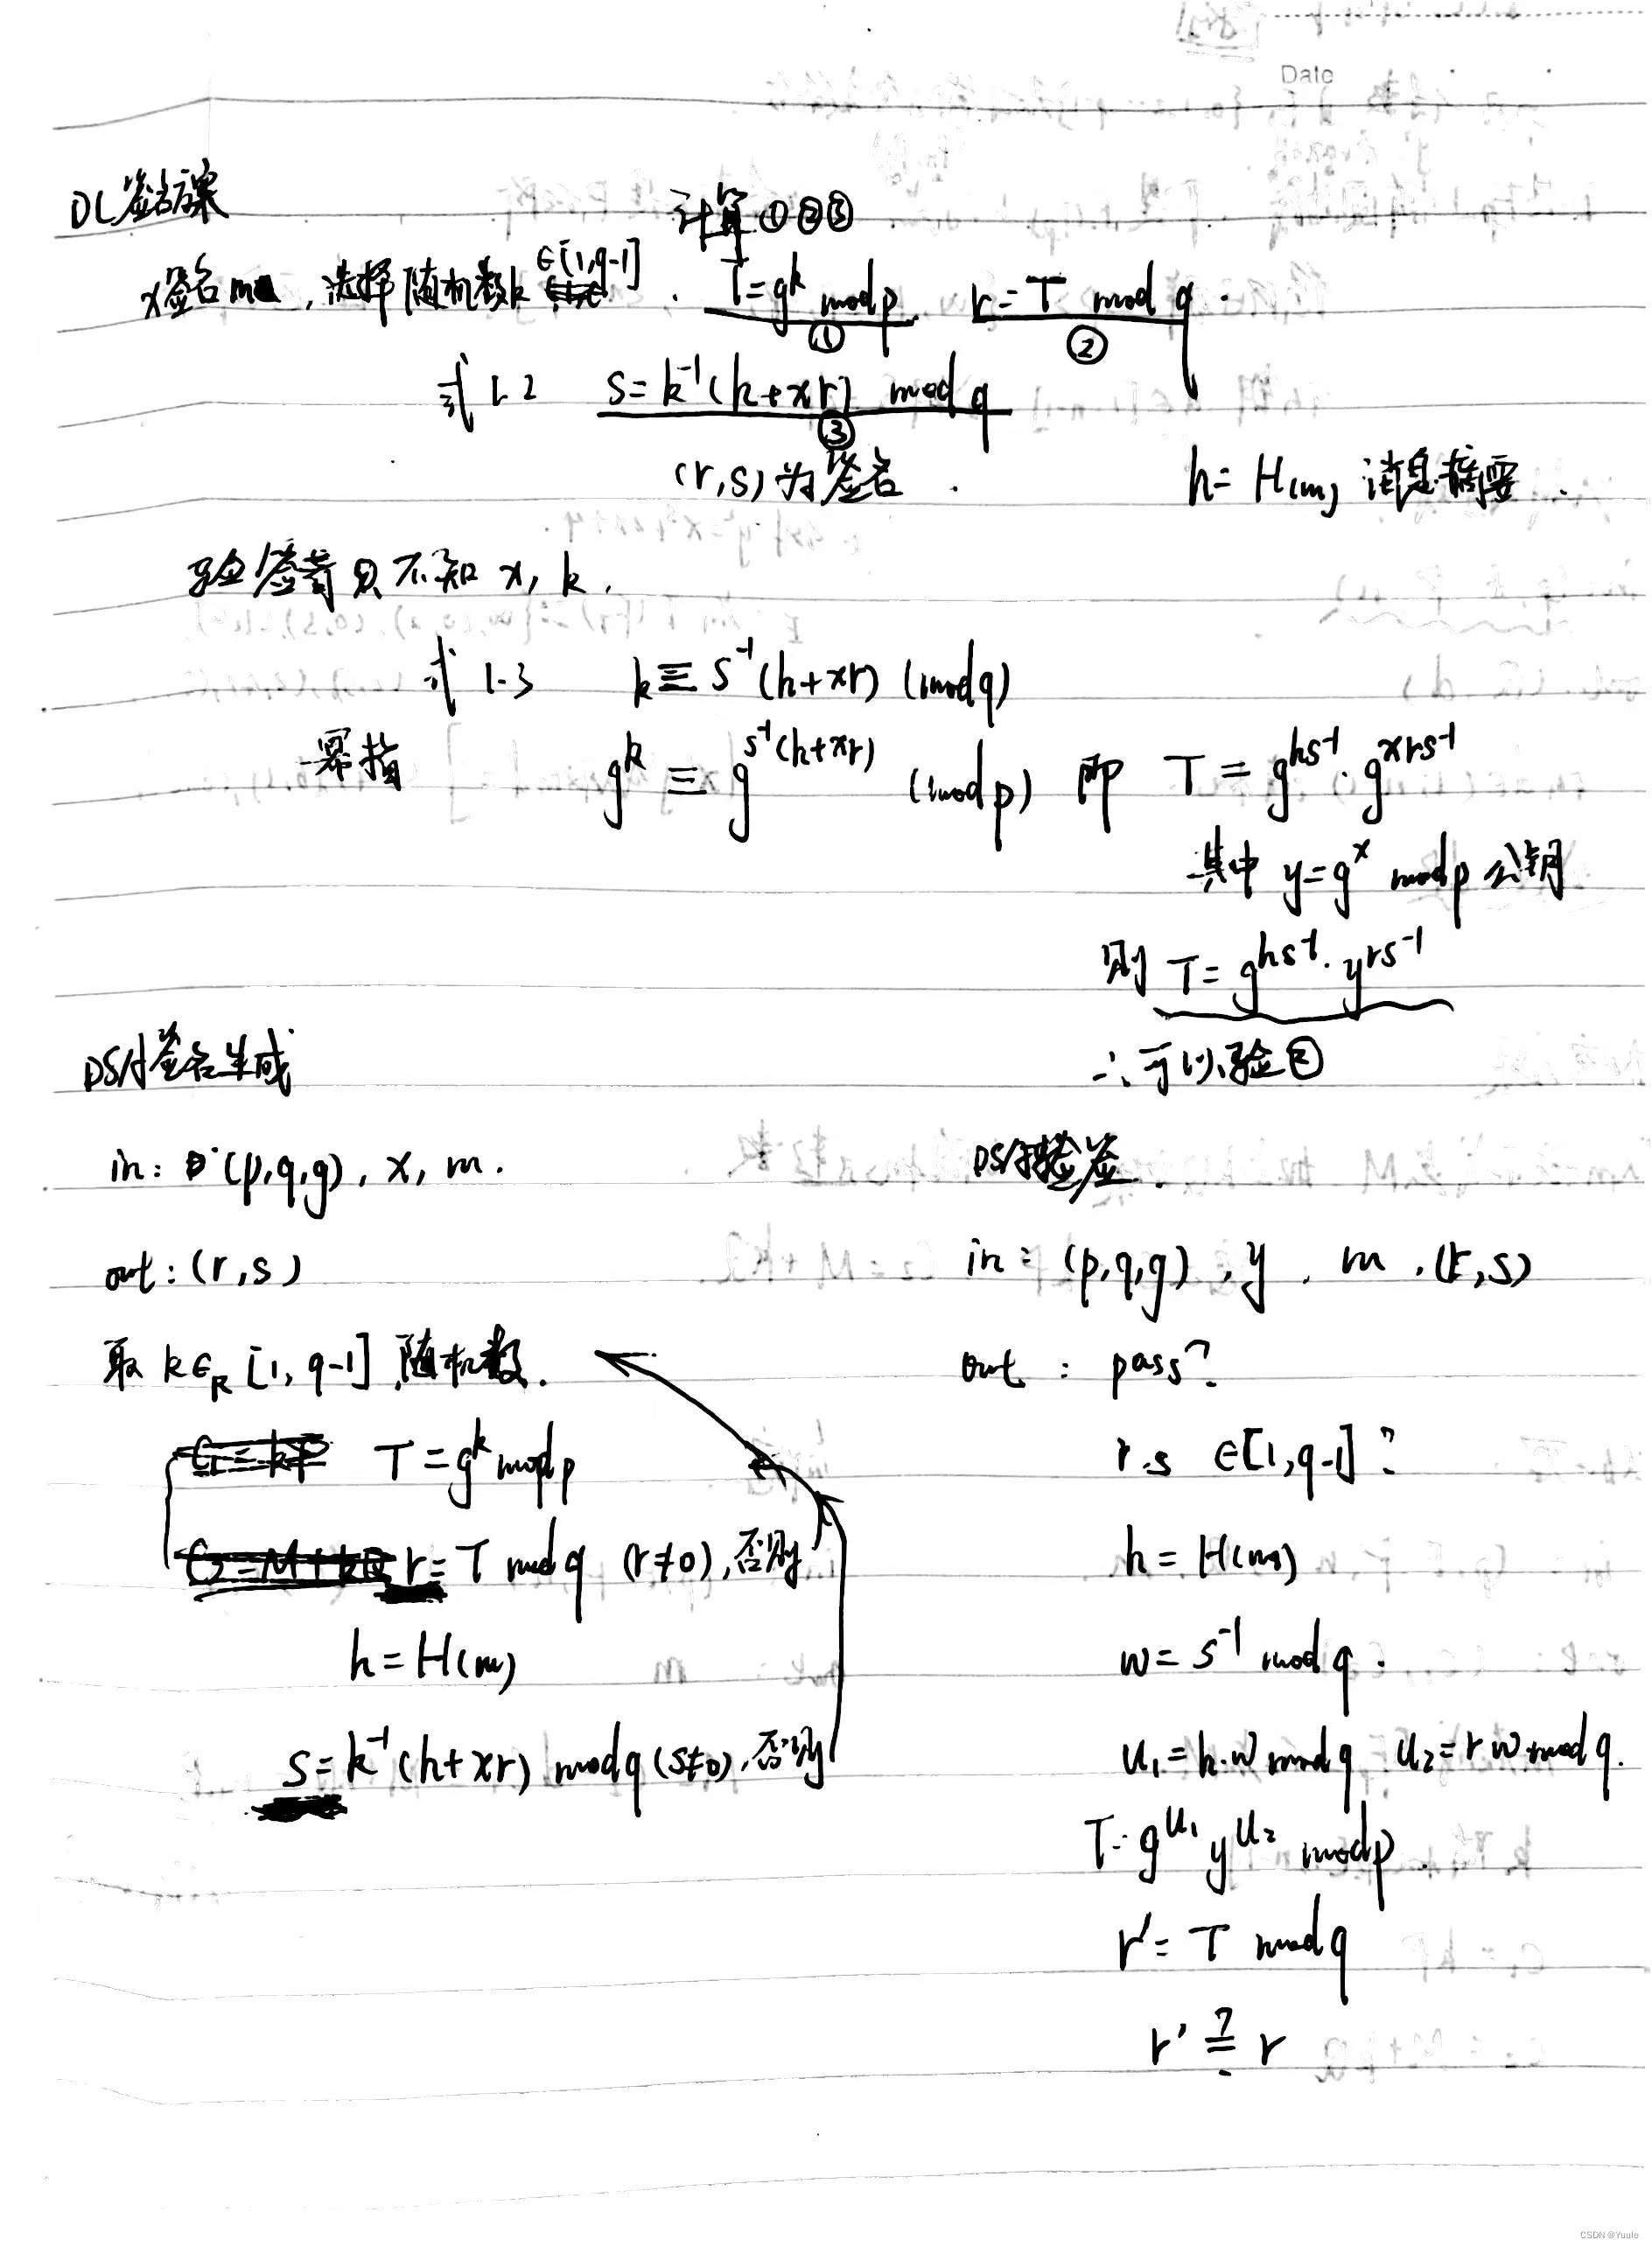 Date
DL签名方案
计算①②③
x签名m,选择随机数k ∈[1,q-1]. T=g^k mod p ① r=T mod q. ②
式1-2 s=k^-1(h+xr) mod q ③
(r,s)为签名. h=H(m) 消息摘要.
验签者只不知x,k.
式1-3 k≡s^-1(h+xr) (mod q)
幂指 g^k≡g^{s^-1(h+xr)} (mod p) 即 T=g^{hs^-1}·g^{xrs^-1}
其中 y=g^x mod p 公钥
则 T=g^{hs^-1}·y^{rs^-1}
∴可以验②
DSA签名生成
in: (p,q,g), x, m.
out: (r,s)
取 k∈_R [1, q-1] 随机数.
C1=kP T=g^k mod p
C2=M+kQ r=T mod q (r≠0),否则
h=H(m)
s=k^-1(h+xr) mod q (s≠0),否则
DSA验签.
in: (p,q,g), y, m, (r,s)
out: pass?
r.s ∈[1,q-1]?
h=H(m)
w=s^-1 mod q.
u1=h·w mod q u2=rw mod q.
T=g^u1 y^u2 mod p.
r'=T mod q
r' ≟ r
CSDN @Yuule